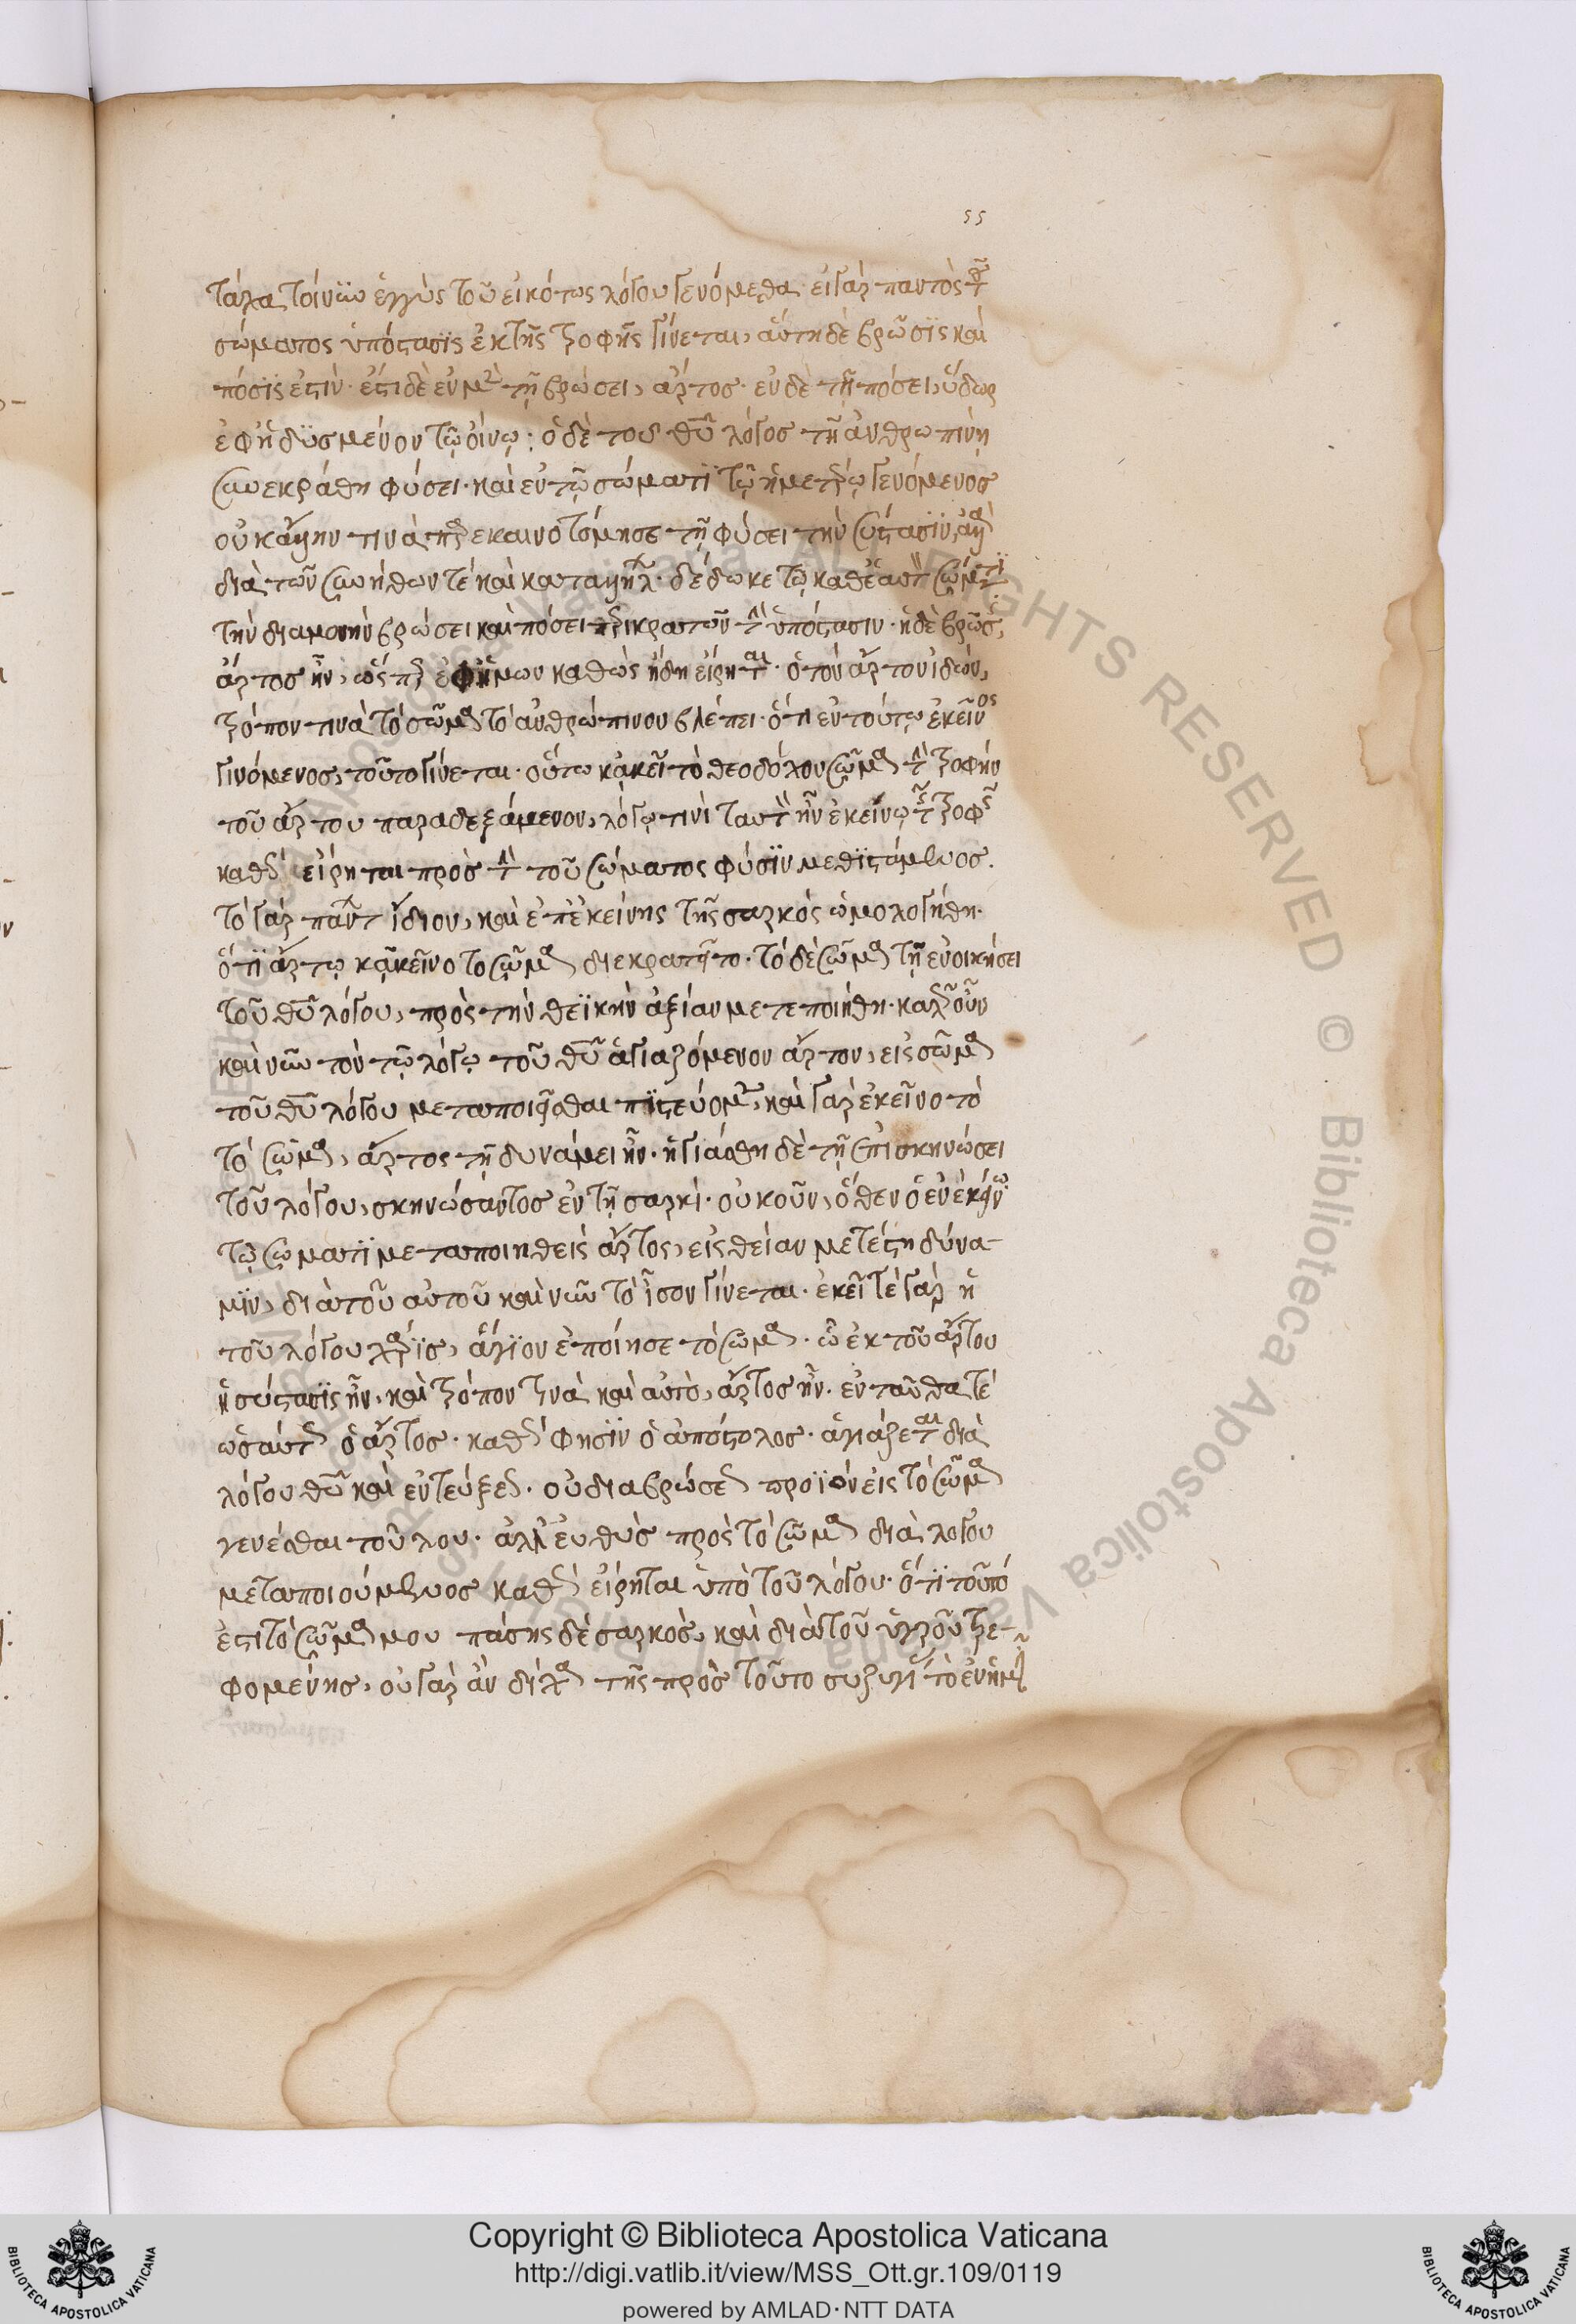 55
τάχα τοίνυν ἐγγὺς τοῦ εἰκότως λόγου γενόμεθα. εἰ γὰρ παντὸς τοῦ
σώματος ὑπόστασις ἐκ τῆς τροφῆς γίνεται, αὕτη δὲ βρῶσϊς καὶ
πόσϊς ἐστὶν. ἔστι δὲ ἐν μὲν τῇ βρώσει, ἄρτος. ἐν δὲ τῇ πόσει, ὕδωρ
ἐφηδϋσμένον τῷ οἴνῳ: ὁ δὲ τοῦ θῦ λόγος τῇ ἀνθρωπίνῃ
συνεκράθη φύσει. καὶ ἐν τῷ σώματϊ τῷ ἡμετέρῳ γενόμενος
οὐκ ἄλλην τινὰ παρεκαινοτόμησε τῇ φύσει τὴν σύστασϊν, ἀλλὰ
διὰ τῶν συνήθων τὲ καὶ καταλλήλων. δέδωκε τῷ καθ' ἑαυτὸν σώματϊ
τὴν διαμονὴν βρώσει καὶ πόσει περικρατῶν τὴν ὑπόστασιν. ἡ δὲ βρῶσις,
ἄρτος ἦν, ὥσπερ ἐφ' ἡμῶν καθὼς ἤδη εἴρηται. ὁ τὸν ἄρτον ἰδὼν,
τρόπον τινὰ τὸ σῶμα τὸ ἀνθρώπινον βλέπει. ὅτι ἐν τούτῳ ἐκεῖνος
γινόμενος, τοῦτο γίνεται. οὕτω κἀκεῖ τὸ θεοδόχον σῶμα τὴν τροφήν
τοῦ ἄρτου παραδεξάμενον, λόγῳ τινὶ ταυτὸν ἦν ἐκείνῳ τῆς τροφῆς
καθὼς εἴρηται πρὸς τὴν τοῦ σώματος φύσϊν μεθϊσταμένης.
τὸ γὰρ πάντων ἴδιον, καὶ ἐπ' ἐκείνης τῆς σαρκός ὡμολογήθη.
ὅτϊ ἄρτῳ κἀκεῖνο το σῶμα διεκρατεῖτο. τὸ δὲ σῶμα τῇ ἐνοικήσει
τοῦ θῦ λόγου, πρὸς τὴν θεϊκὴν ἀξίαν μετεποιήθη. καλῶς οὖν
καὶ νῦν τὸν τῷ λόγῳ τοῦ θῦ ἁγιαζόμενον ἄρτον, εἰς σῶμα
τοῦ θῦ λόγου μεταποιεῖσθαι πϊστεύομαι, καὶ γὰρ ἐκεῖνο τὸ
τὸ σῶμα, ἄρτος τῇ δυνάμει ἦν. ἡγιάσθη δὲ τῇ ἐπισκηνώσει
τοῦ λόγου, σκηνώσαντος ἐν τῇ σαρκί. οὐκοῦν, ὅθεν ὁ ἐν ἐκείνῳ
τῷ σωματϊ μεταποιηθεὶς ἄρτος, εἰς θείαν μετέστη δύνα-
μϊν, διὰ τοῦ αὐτοῦ καὶ νῦν τὸ ἶσον γίνεται. ἐκεῖ τὲ γὰρ ἡ
τοῦ λόγου χάρϊς, ἅγϊον ἐποίησε τὸ σῶμα. ᾧ ἐκ τοῦ ἄρτου
ἡ σύστασϊς ἦν. καὶ τρόπον τινὰ καὶ αὐτὸ, ἄρτος ἦν. ἐνταῦθα τέ
ὡσαύτως ὁ ἄρτος. καθώς φησϊν ὁ ἀπόστολος. ἁγιάζεται διὰ
λόγου θῦ καὶ ἐντεύξεως. οὐ διὰ βρώσεως προϊὸν εἰς τὸ σῶμα
γενέσθαι τοῦ λου. ἀλλ' εὐθὺς πρὸς τὸ σῶμα διὰ λόγου
μεταποιούμενος καθὼς εἴρηται ὑπὸ τοῦ λόγου. ὅτϊ τοῦτό
ἐστι τὸ σῶμα μου πάσης δὲ σαρκὸς, καὶ διὰ τοῦ ὑγροῦ τρε-
φομένης, οὐ γὰρ ἂν δίχα τῆς πρὸς τοῦτο συζυγίας τὸ ἐν ἡμῖν
Copyright © Biblioteca Apostolica Vaticana
http://digi.vatlib.it/view/MSS_Ott.gr.109/0119
powered by AMLAD·NTT DATA